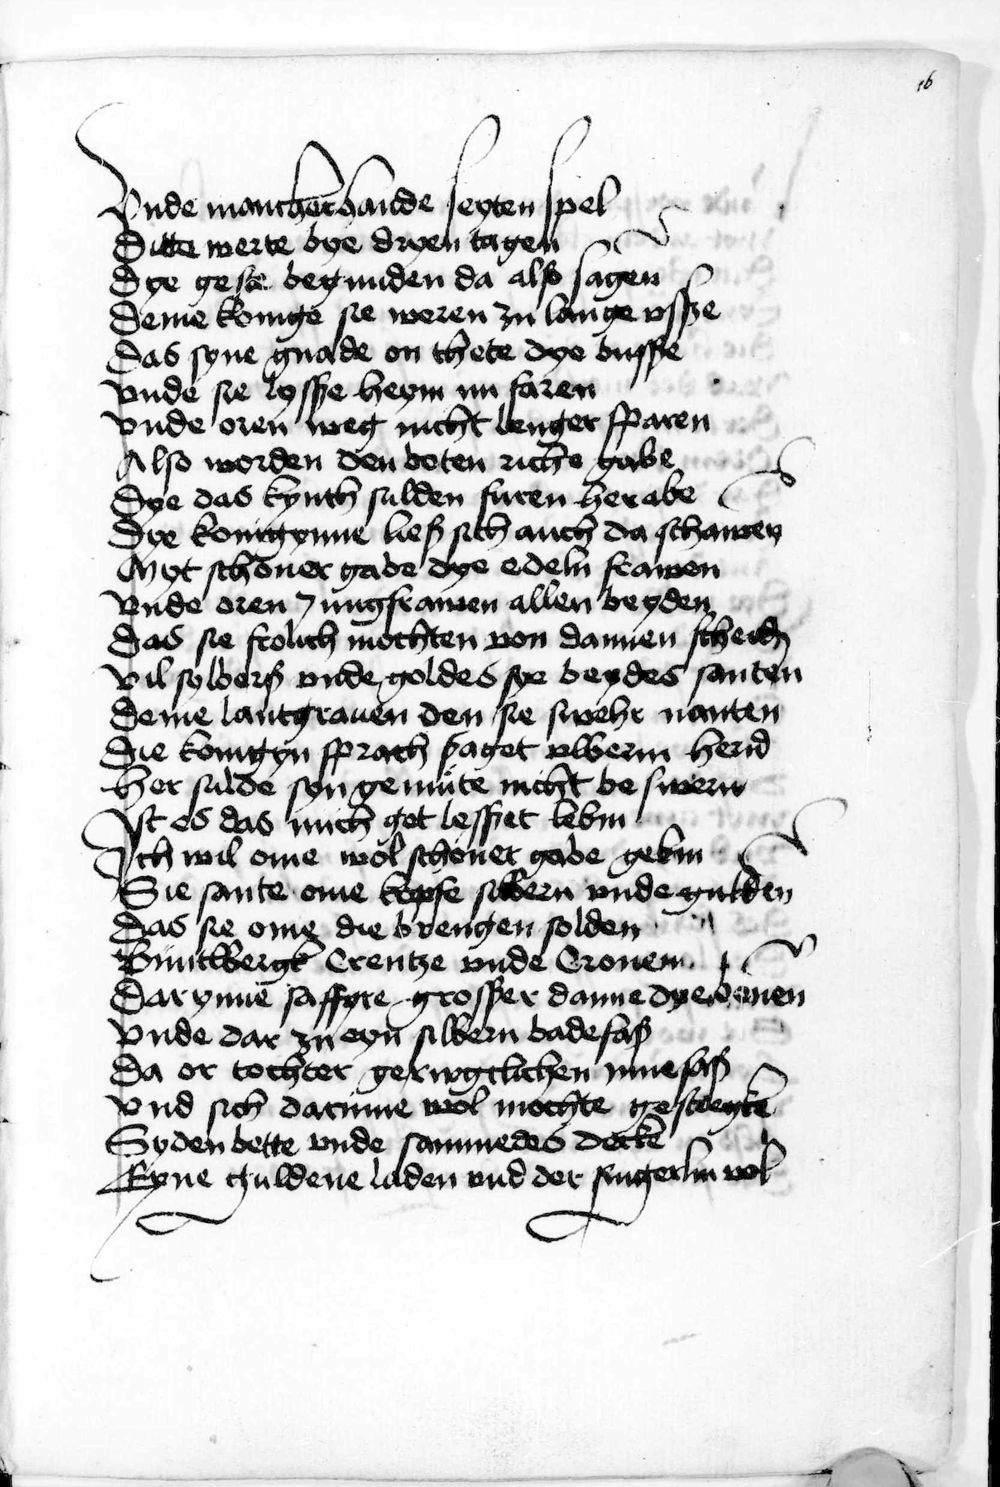 16
Vnde mancherhande seyten spel
Ditte werte bye dryen tagen
Dye geste begunden da also sagen
Deme konige sie weren zu lange vsse
Das syne gnade on thete dye busse
vnde sie lysse heym nu faren
vnde oren weg nicht lenger sparen
Also worden den boten riche gabe
Dye das kynth sulden furen her abe
Dye konigynne ließ sich auch da schawen
Myt schoner gabe dye edeln frawen
vnde oren Jungfrawen allen beyden
Das sie frolich mochten von dannen scheidn
Vil sylberß vnde goldes sye beydes santen
Deme lantgrauen den sie swehr nanten
Die konigyn sprach saget vlberm hernd
Her sulde syn gemüte nicht beswern
Ist es das mich got lesset lebin
Ich wil ome wol schoner gabe gebin
Sie sante ome kopfe silbern vnde gulden
Das sie ome die brengen solden
Crentze vnde Cronen
Darynne saffyre grosser danne dye
vnde dar zu eyn silbern badefaß
Da or tochter gerugclichen inne saß
vnd sich darinne wol mochte gestregke
Syden bette vnde sammedes decke
Eyne guldene laden vnd der fingerlin vol